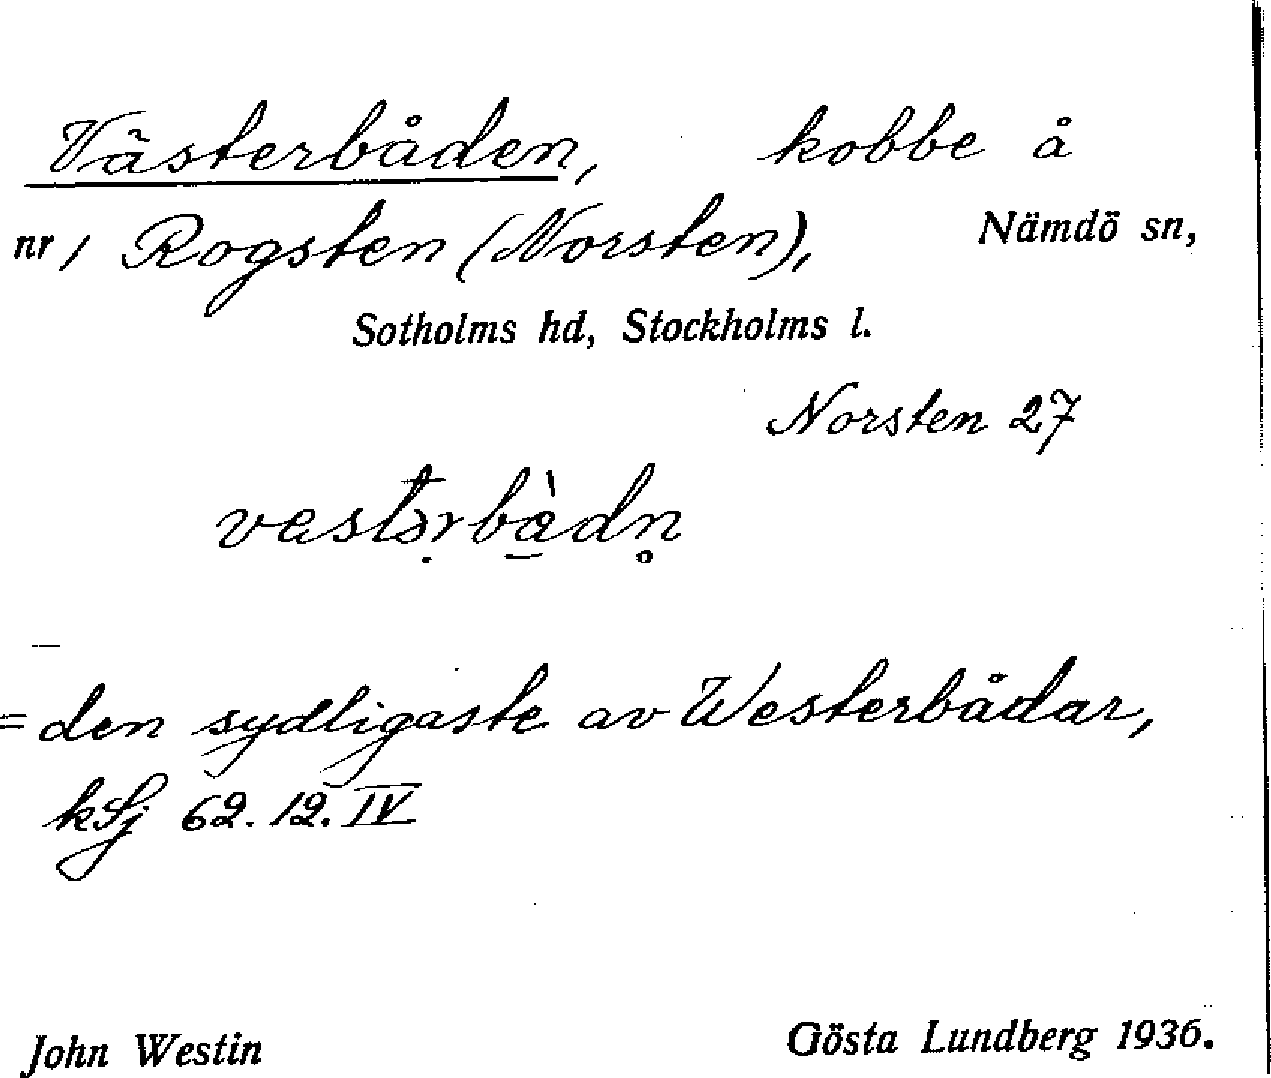 Västerbåden, kobbe å
nr 1 Rogsten (Norsten), Nämdö sn,
Sotholms hd, Stockholms l.
Norsten 27
vestəṛbà̱dn̥
= den sydligaste av Westerbådar,
kSj 62. 12. IV
John Westin Gösta Lundberg 1936.